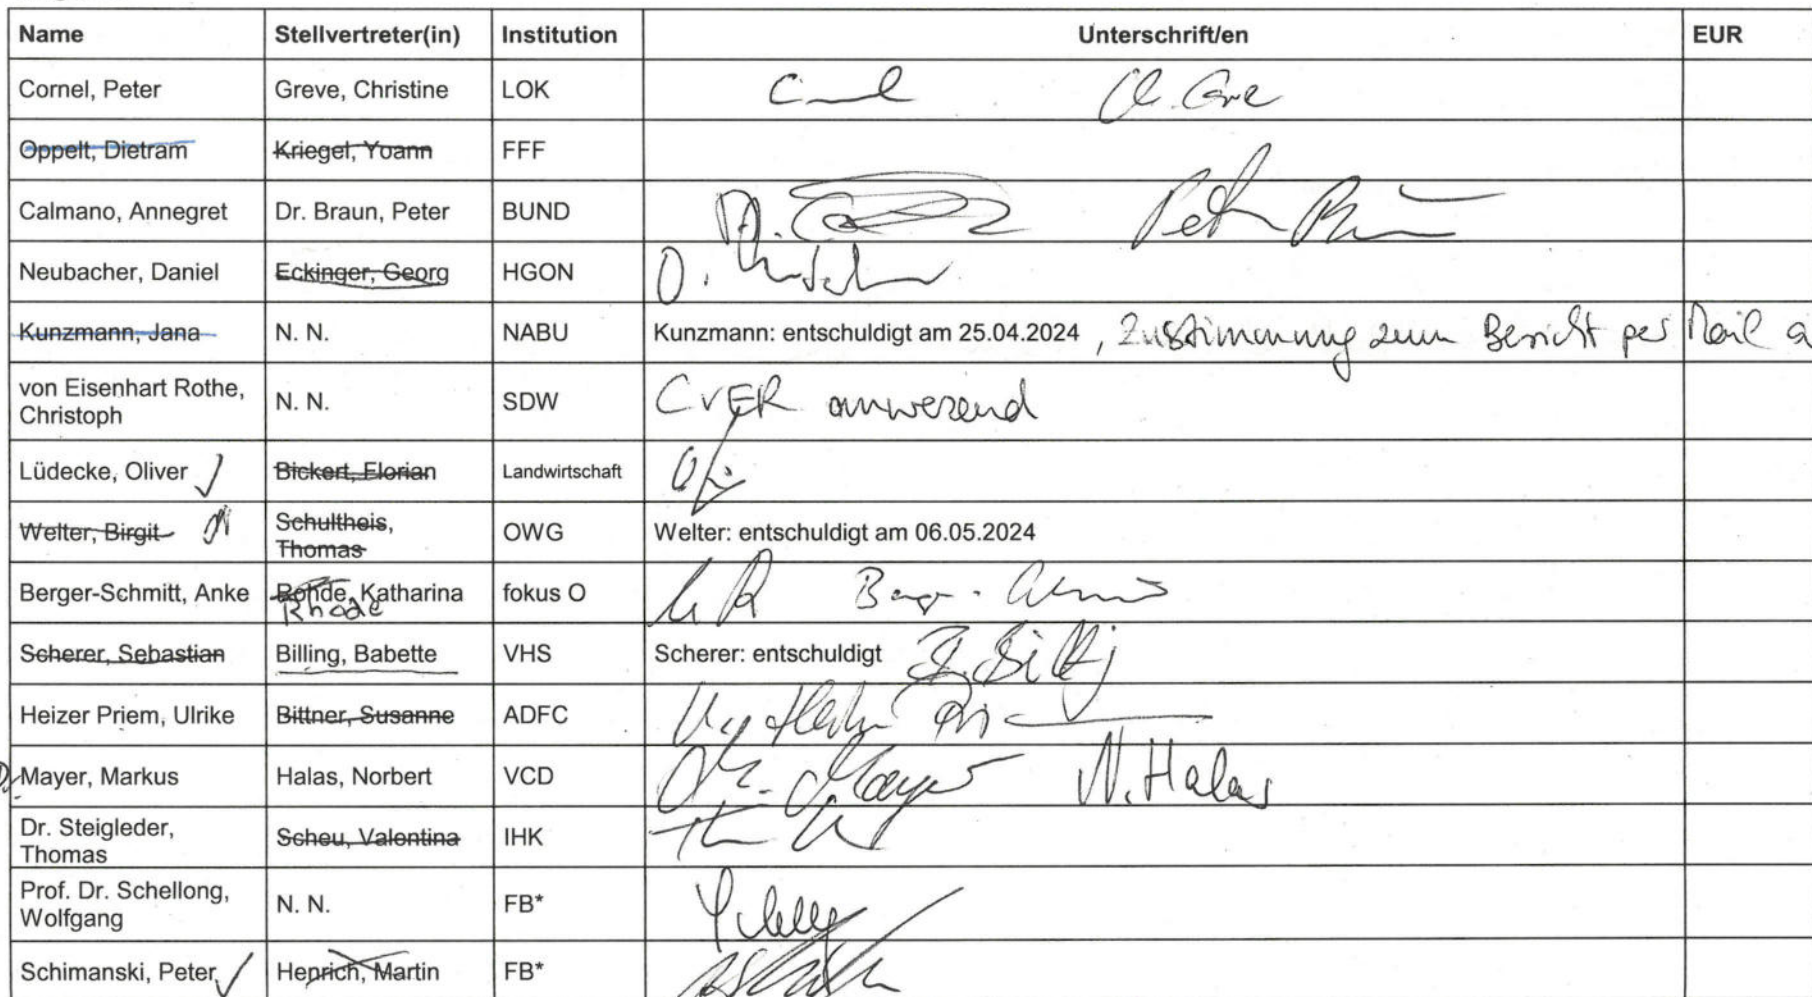 Name Stellvertreter(in) Institution Unterschrift/en EUR
Cornel, Peter Greve, Christine LOK
Oppelt, Dietram Kriegel, Yoann FFF
Calmano, Annegret Dr. Braun, Peter BUND
Neubacher, Daniel Eckinger, Georg HGON
Kunzmann, Jana N. N. NABU Kunzmann: entschuldigt am 25.04.2024 , Zustimmung zum Bericht per Mail
von Eisenhart Rothe,
Christoph N. N. SDW CvER anwesend
Lüdecke, Oliver Bickert, Florian Landwirtschaft
Welter, Birgit Schultheis,
Thomas OWG Welter: entschuldigt am 06.05.2024
Berger-Schmitt, Anke Rohde, Katharina fokus O
Rhode
Scherer, Sebastian Billing, Babette VHS Scherer: entschuldigt
Heizer Priem, Ulrike Bittner, Susanne ADFC
Mayer, Markus Halas, Norbert VCD M. Mayer N. Halas
Dr. Steigleder,
Thomas Scheu, Valentina IHK
Prof. Dr. Schellong,
Wolfgang N. N. FB*
Schimanski, Peter Henrich, Martin FB*